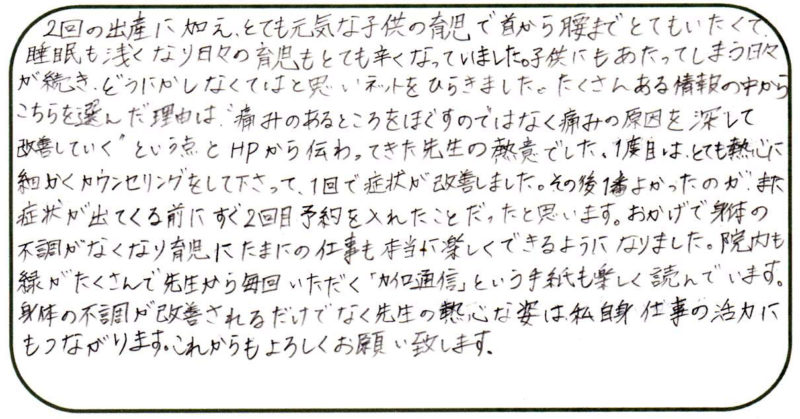 2回の出産に加え、とても元気な子供の育児で首から腰までとてもいたくて、
睡眠も浅くなり日々の育児もとても辛くなっていました。子供にもあたってしまう日々
が続き、どうにかしなくてはと思いネットをひらきました。たくさんある情報の中から
こちらを選んだ理由は、"痛みのあるところをほぐすのではなく痛みの原因を深して
改善していく"という点とHPから伝わってきた先生の熱意でした。1度目は、とても熱心に
細かくカウンセリングをして下さって、1回で症状が改善しました。その後1番よかったのが、また
症状が出てくる前にすぐ2回目予約を入れたことだったと思います。おかげで身体の
不調がなくなり育児にたまにの仕事も本当に楽しくできるようになりました。院内も
緑がたくさんで先生から毎回いただく「カイロ通信」という手紙も楽しく読んでいます。
身体の不調が改善されるだけでなく先生の熱心な姿は私自身仕事の活力に
もつながります。これからもよろしくお願い致します。